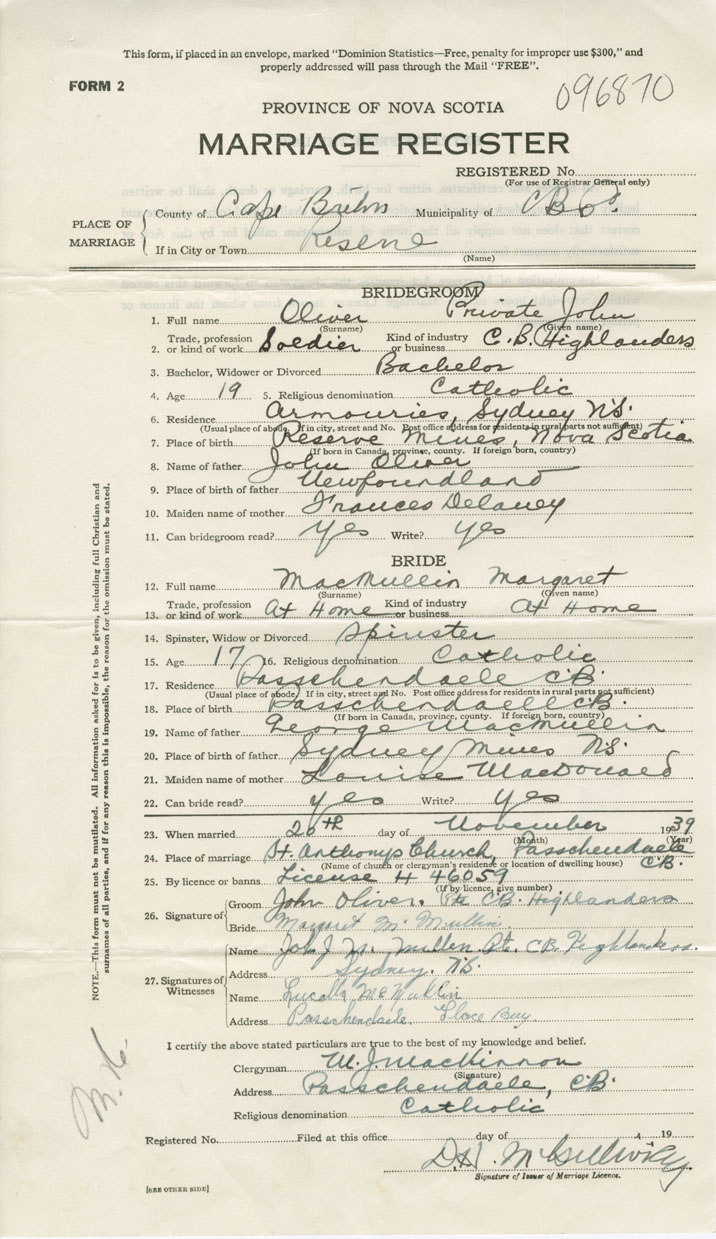 This form, if placed in an envelope, marked "Dominion Statistics—Free, penalty for improper use $300," and
properly addressed will pass through the Mail "FREE".
FORM 2
096870
PROVINCE OF NOVA SCOTIA
MARRIAGE REGISTER
REGISTERED No.
(For use of Registrar General only)
PLACE OF MARRIAGE
County of Cape Breton Municipality of C B Co.
If in City or Town Reserve
(Name)
BRIDEGROOM
1. Full name Oliver Private John
(Surname) (Given name)
2. Trade, profession or kind of work Soldier Kind of industry or business C.B. Highlanders
3. Bachelor, Widower or Divorced Bachelor
4. Age 19 5. Religious denomination Catholic
6. Residence Armouries, Sydney N.S.
(Usual place of abode. If in city, street and No. Post office address for residents in rural parts not sufficient)
7. Place of birth Reserve Mines, Nova Scotia
(If born in Canada, province, county. If foreign born, country)
8. Name of father John Oliver
9. Place of birth of father Newfoundland
10. Maiden name of mother Frances Delaney
11. Can bridegroom read? Yes Write? Yes
BRIDE
12. Full name MacMullin Margaret
(Surname) (Given name)
13. Trade, profession or kind of work At Home Kind of industry or business At Home
14. Spinster, Widow or Divorced Spinster
15. Age 17 16. Religious denomination Catholic
17. Residence Passchendaele C.B.
(Usual place of abode. If in city, street and No. Post office address for residents in rural parts not sufficient)
18. Place of birth Passchendaele C.B.
(If born in Canada, province, county. If foreign born, country)
19. Name of father George MacMullin
20. Place of birth of father Sydney Mines N.S.
21. Maiden name of mother Louise MacDonald
22. Can bride read? Yes Write? Yes
23. When married 20th day of November 1939
(Month) (Year)
24. Place of marriage St. Anthonys Church, Passchendaele C.B.
(Name of church or clergyman's residence or location of dwelling house)
25. By licence or banns License # 46059
(If by licence, give number)
26. Signature of
Groom John Oliver. Pte C.B. Highlanders
Bride Margaret Mc Mullin
27. Signatures of Witnesses
Name J. Mc Mullen Pte. C.B. Highlanders.
Address Sydney. N.S.
Name Lucella McMullin
Address Passchendaele. Glace Bay.
I certify the above stated particulars are true to the best of my knowledge and belief.
Clergyman M. J. MacKinnon
(Signature)
Address Passchendaele, C.B.
Religious denomination Catholic
Registered No. Filed at this office day of 19
D.H. McGillivray
Signature of Issuer of Marriage Licence.
[SEE OTHER SIDE]
NOTE.—This form must not be mutilated. All information asked for is to be given, including full Christian and
surnames of all parties, and if for any reason this is impossible, the reason for the omission must be stated.